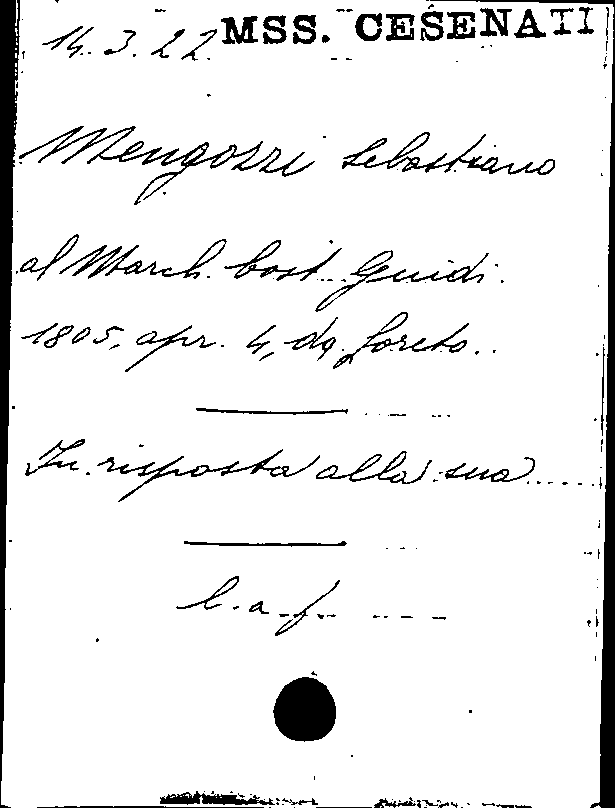 14.3.22 MSS. CESENATI
Mengozzi Sebastiano
al March. Cost. Guidi.
1805, apr. 4, da Loreto.
In risposta alla sua
l. a. f.